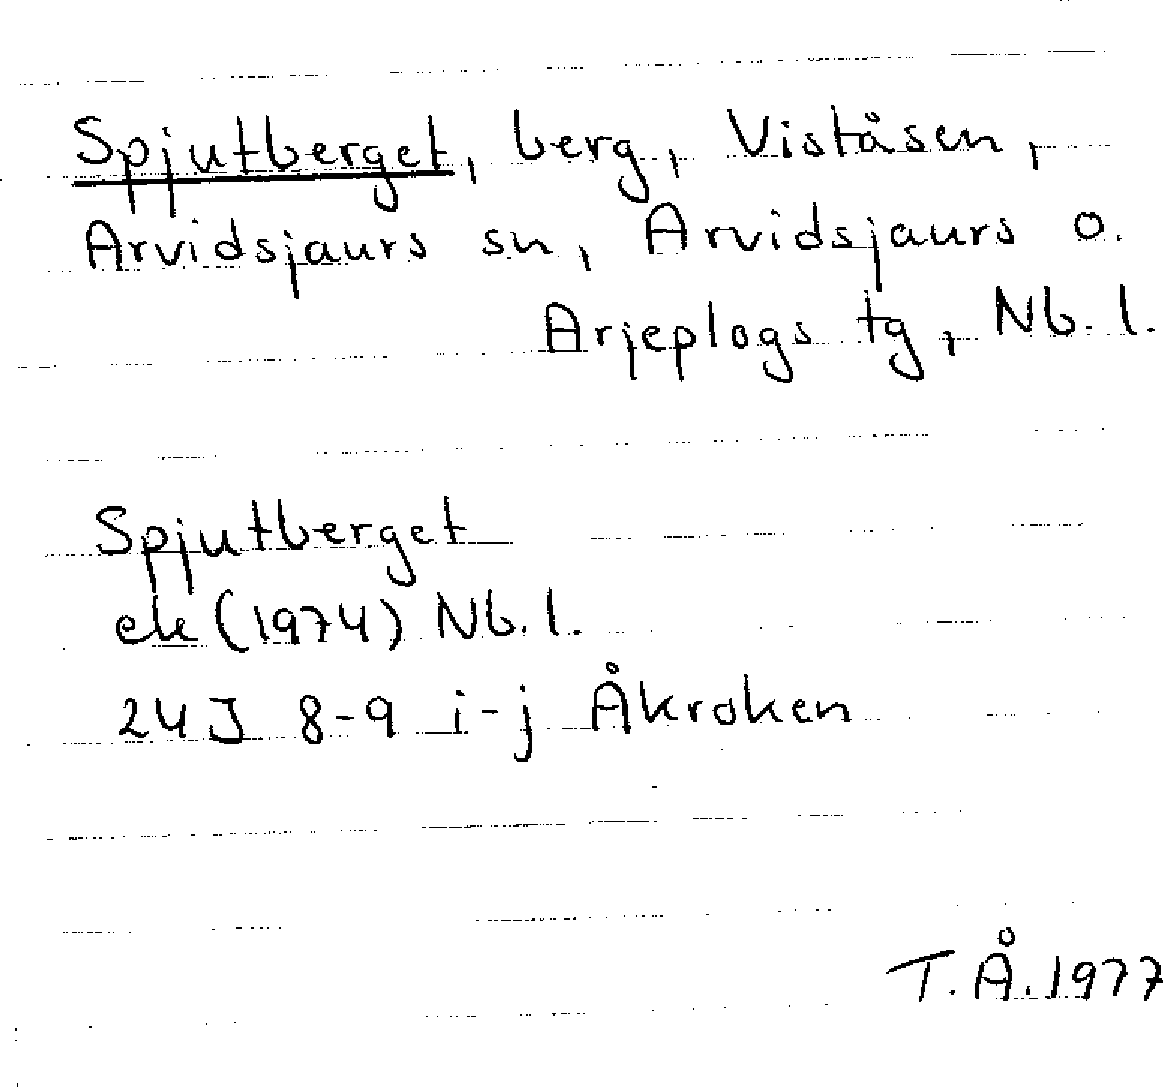 Spjutberget, berg, Viståsen,
Arvidsjaurs sn, Arvidsjaurs o.
Arjeplogs tg, Nb. l.
Spjutberget
ek (1974) Nb. l.
24J 8-9 i-j Åkroken
T.Å. 1977